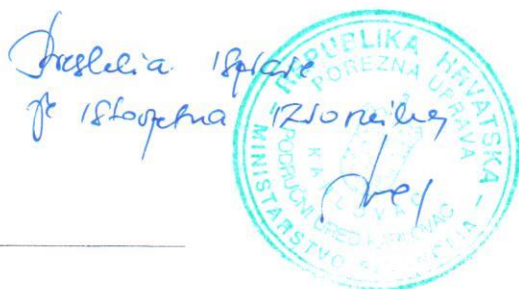 Preslika isprave
je istovjetna izvorniku
REPUBLIKA HRVATSKA - MINISTARSTVO FINANCIJA
POREZNA UPRAVA
PODRUČNI URED KARLOVAC
KARLOVAC